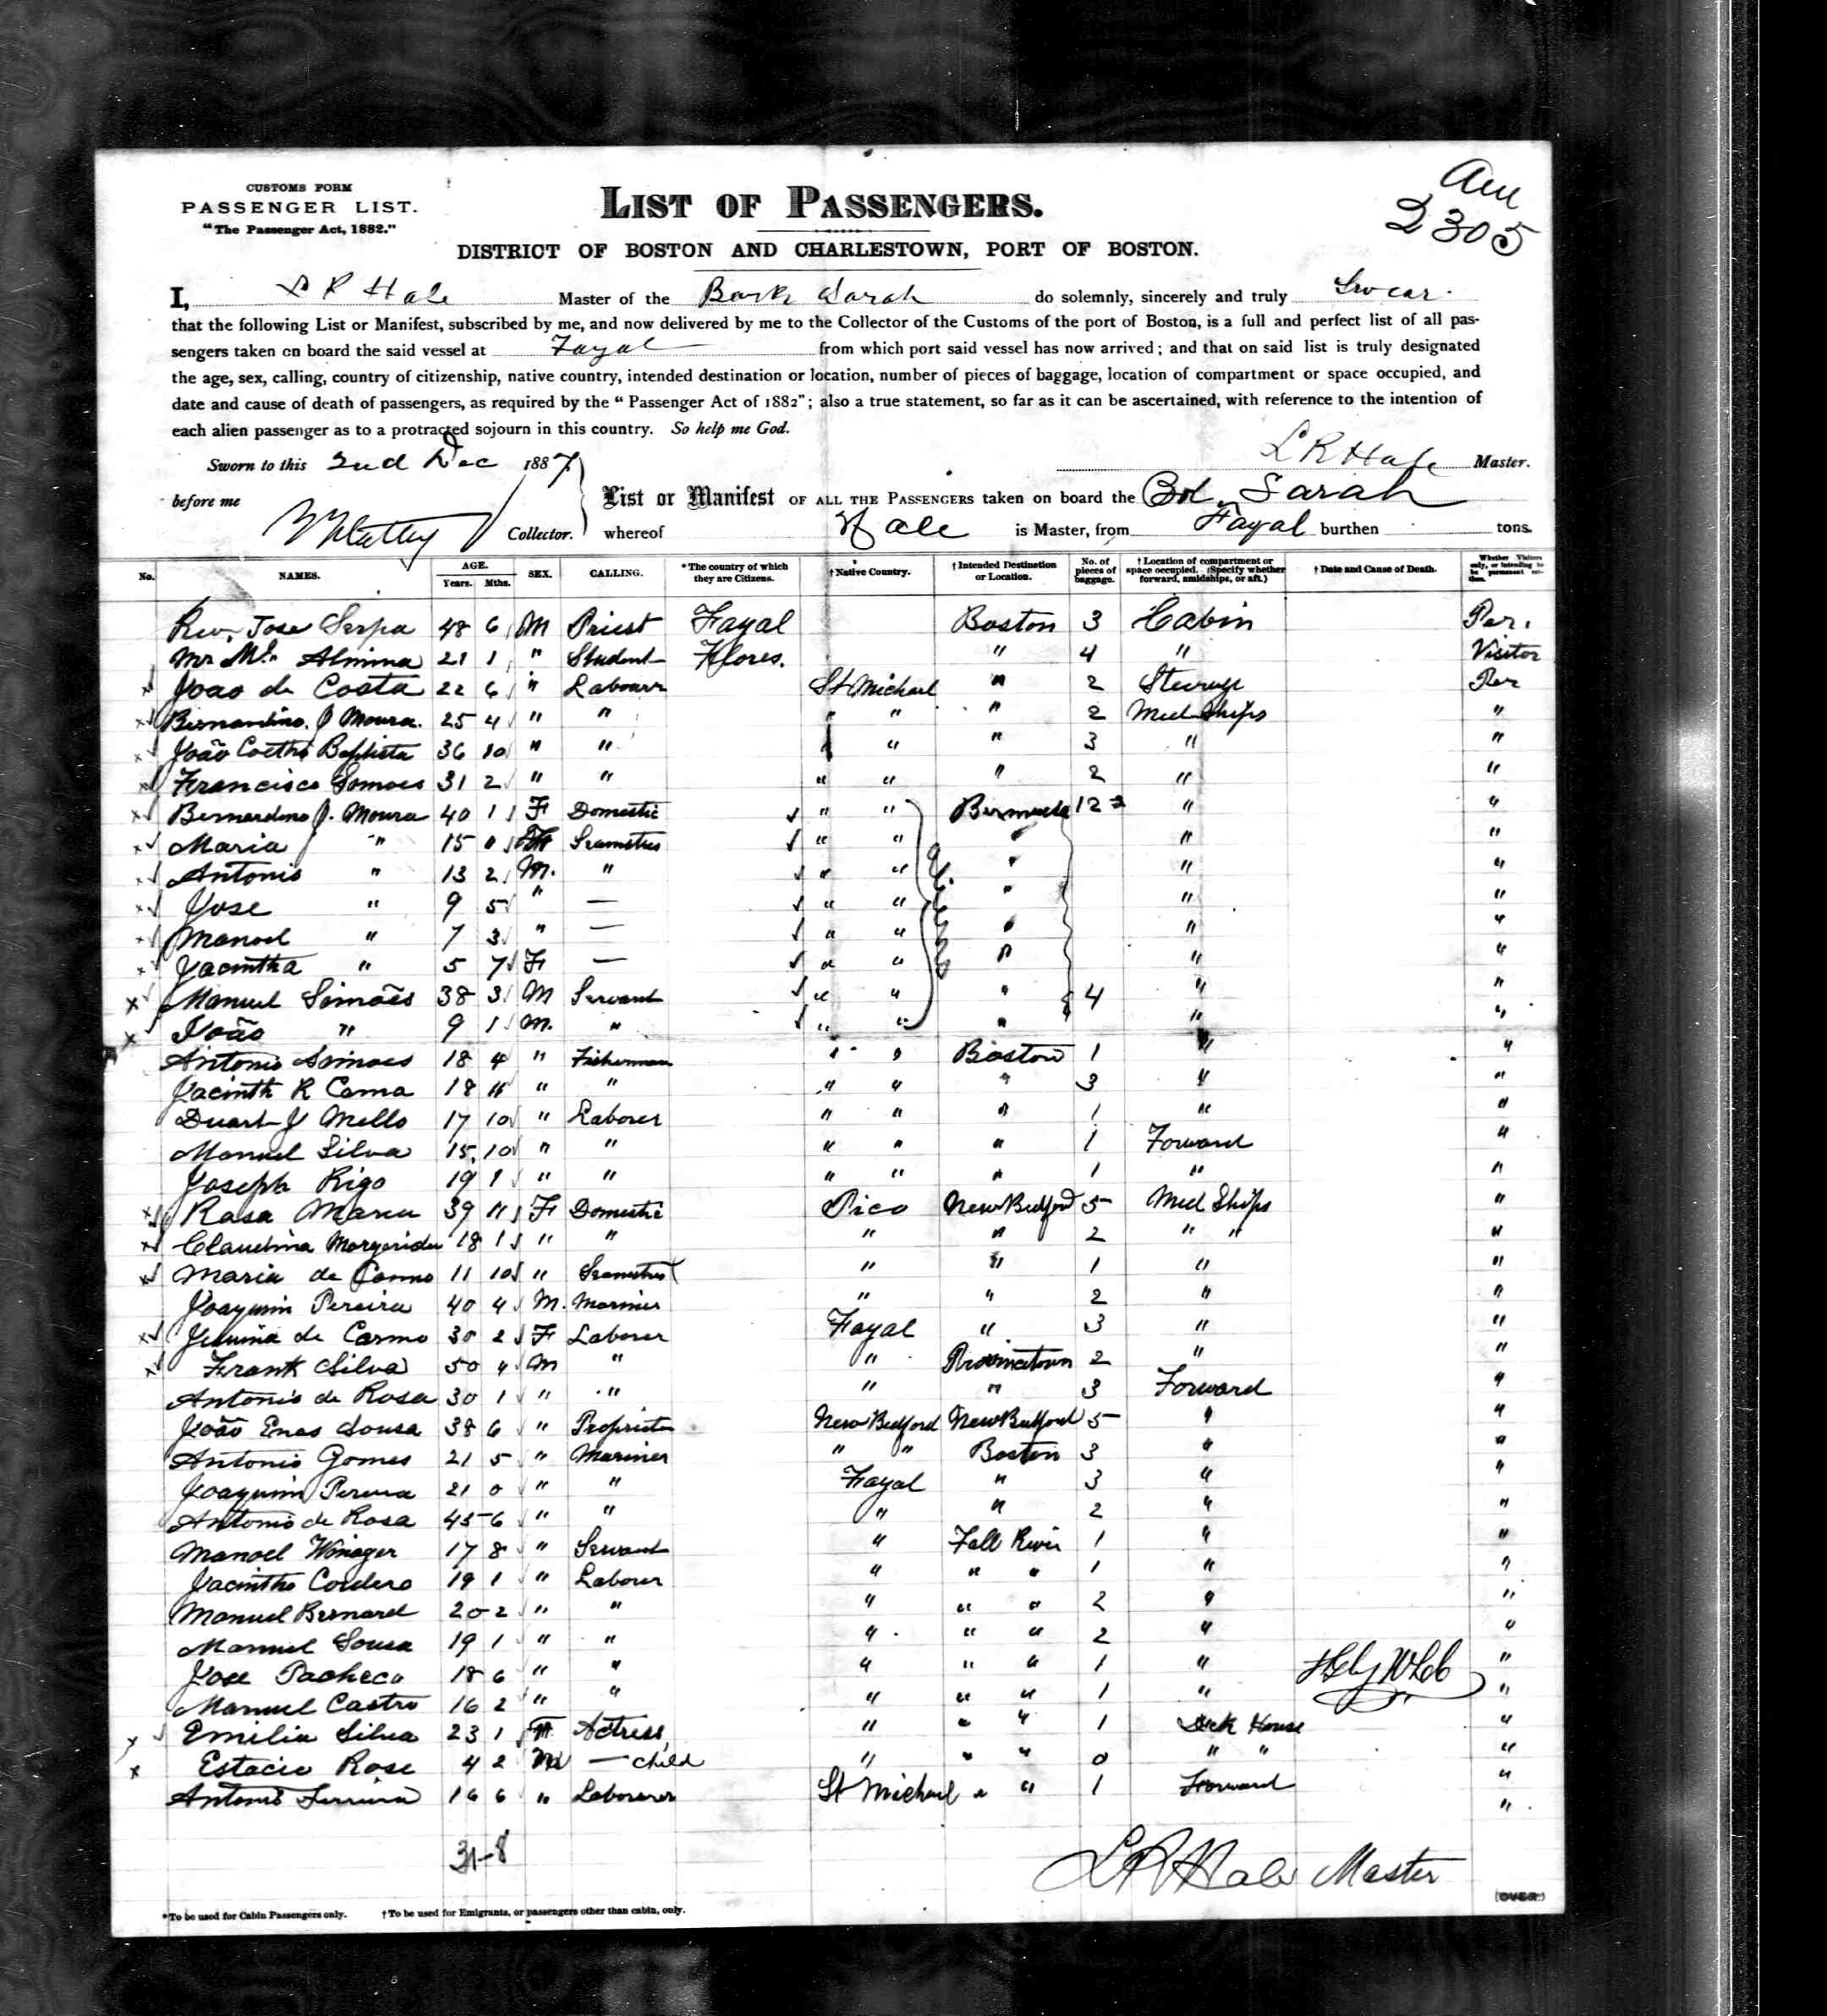 CUSTOMS FORM
PASSENGER LIST.
"The Passenger Act, 1882."
LIST OF PASSENGERS.
2305
DISTRICT OF BOSTON AND CHARLESTOWN, PORT OF BOSTON.
I, L R Hale Master of the Bark Sarah do solemnly, sincerely and truly Swear.
that the following List or Manifest, subscribed by me, and now delivered by me to the Collector of the Customs of the port of Boston, is a full and perfect list of all pas-
sengers taken on board the said vessel at Fayal from which port said vessel has now arrived; and that on said list is truly designated
the age, sex, calling, country of citizenship, native country, intended destination or location, number of pieces of baggage, location of compartment or space occupied, and
date and cause of death of passengers, as required by the "Passenger Act of 1882"; also a true statement, so far as it can be ascertained, with reference to the intention of
each alien passenger as to a protracted sojourn in this country. So help me God.
Sworn to this 2nd Dec 1887 L R Hale Master.
before me Collector.
List or Manifest OF ALL THE PASSENGERS taken on board the Sarah
whereof Hale is Master, from Fayal burthen tons.
No. NAMES. AGE. Years. Mths. SEX. CALLING. *The country of which they are Citizens. †Native Country. †Intended Destination or Location. No. of pieces of baggage. †Location of compartment or space occupied. (Specify whether forward, amidships, or aft.) †Date and Cause of Death.
Rev. Jose Serpa 48 6 M Priest Fayal Boston 3 Cabin Per.
Mr Ml. 21 1 " Student Flores. " 4 " Visitor
Joao de Costa 22 6 " Labourer St Michael " 2 Steerage Per
Bernardino J Moura. 25 4 " " " " " 2 Mid Ships "
João Coelho Baptista 36 10 " " " " 3 " "
Francisco Somoes 31 2 " " " " " 2 " "
Bernardino J. Moura 40 1 F Domestic " " Bermuda 12 " "
Maria " 15 0 Seamstres " " " " "
Antonio " 13 2 M. " " " " " "
Jose " 9 5 " — " " " " "
Manoel " 7 3 " — " " " " "
Jacintha " 5 7 F — " " " " "
Manuel Simões 38 3 M Servant " " " 4 " "
João " 9 1 M. " " " " " "
Antonio Simoes 18 4 " Fisherman " " Boston 1 " "
Jacinth R Cama 18 11 " " " " " 3 " "
Duart J Mello 17 10 " Laborer " " " 1 " "
Manuel Silva 15 10 " " " " " 1 Forward "
Joseph Rigo 19 1 " " " " " 1 " "
Rosa Maria 39 11 F Domestic Pico New Bedford 5 Mid Ships "
Claudina Margarida 18 1 " " " " 2 " " "
Maria de Carmo 11 10 " Seamstres " " 1 " "
Joaquim Pereira 40 4 M. Marinier " " 2 " "
de Carmo 30 2 F Laborer Fayal " 3 " "
Frank Silva 50 4 M " " Provincetown 2 " "
Antonio de Rosa 30 1 " " " " 3 Forward "
João Enas Sousa 38 6 " Proprietor New Bedford New Bedford 5 " "
Antonio Gomes 21 5 " Mariner " " Boston 3 " "
Joaquim Pereira 21 0 " " Fayal " 3 " "
Antonio de Rosa 45 6 " " " " 2 " "
Manoel 17 8 " Servant " Fall River 1 " "
Jacintho Cordero 19 1 " Laborer " " " 1 " "
Manuel Bernard 20 2 " " " " " 2 " "
Manuel Sousa 19 1 " " " " " 2 " "
Jose Pacheco 18 6 " " " " " 1 " "
Manuel Castro 16 2 " " " " " 1 " "
Emilia Silva 23 1 F Actress " " " 1 Deck House "
Estacio Rose 4 2 M — child " " " 0 " " "
Antonio Ferreira 16 6 " Laborer St Michael " " 1 Forward "
"
31-8
L R Hale Master
*To be used for Cabin Passengers only. †To be used for Emigrants, or passengers other than cabin, only.
(OVER)